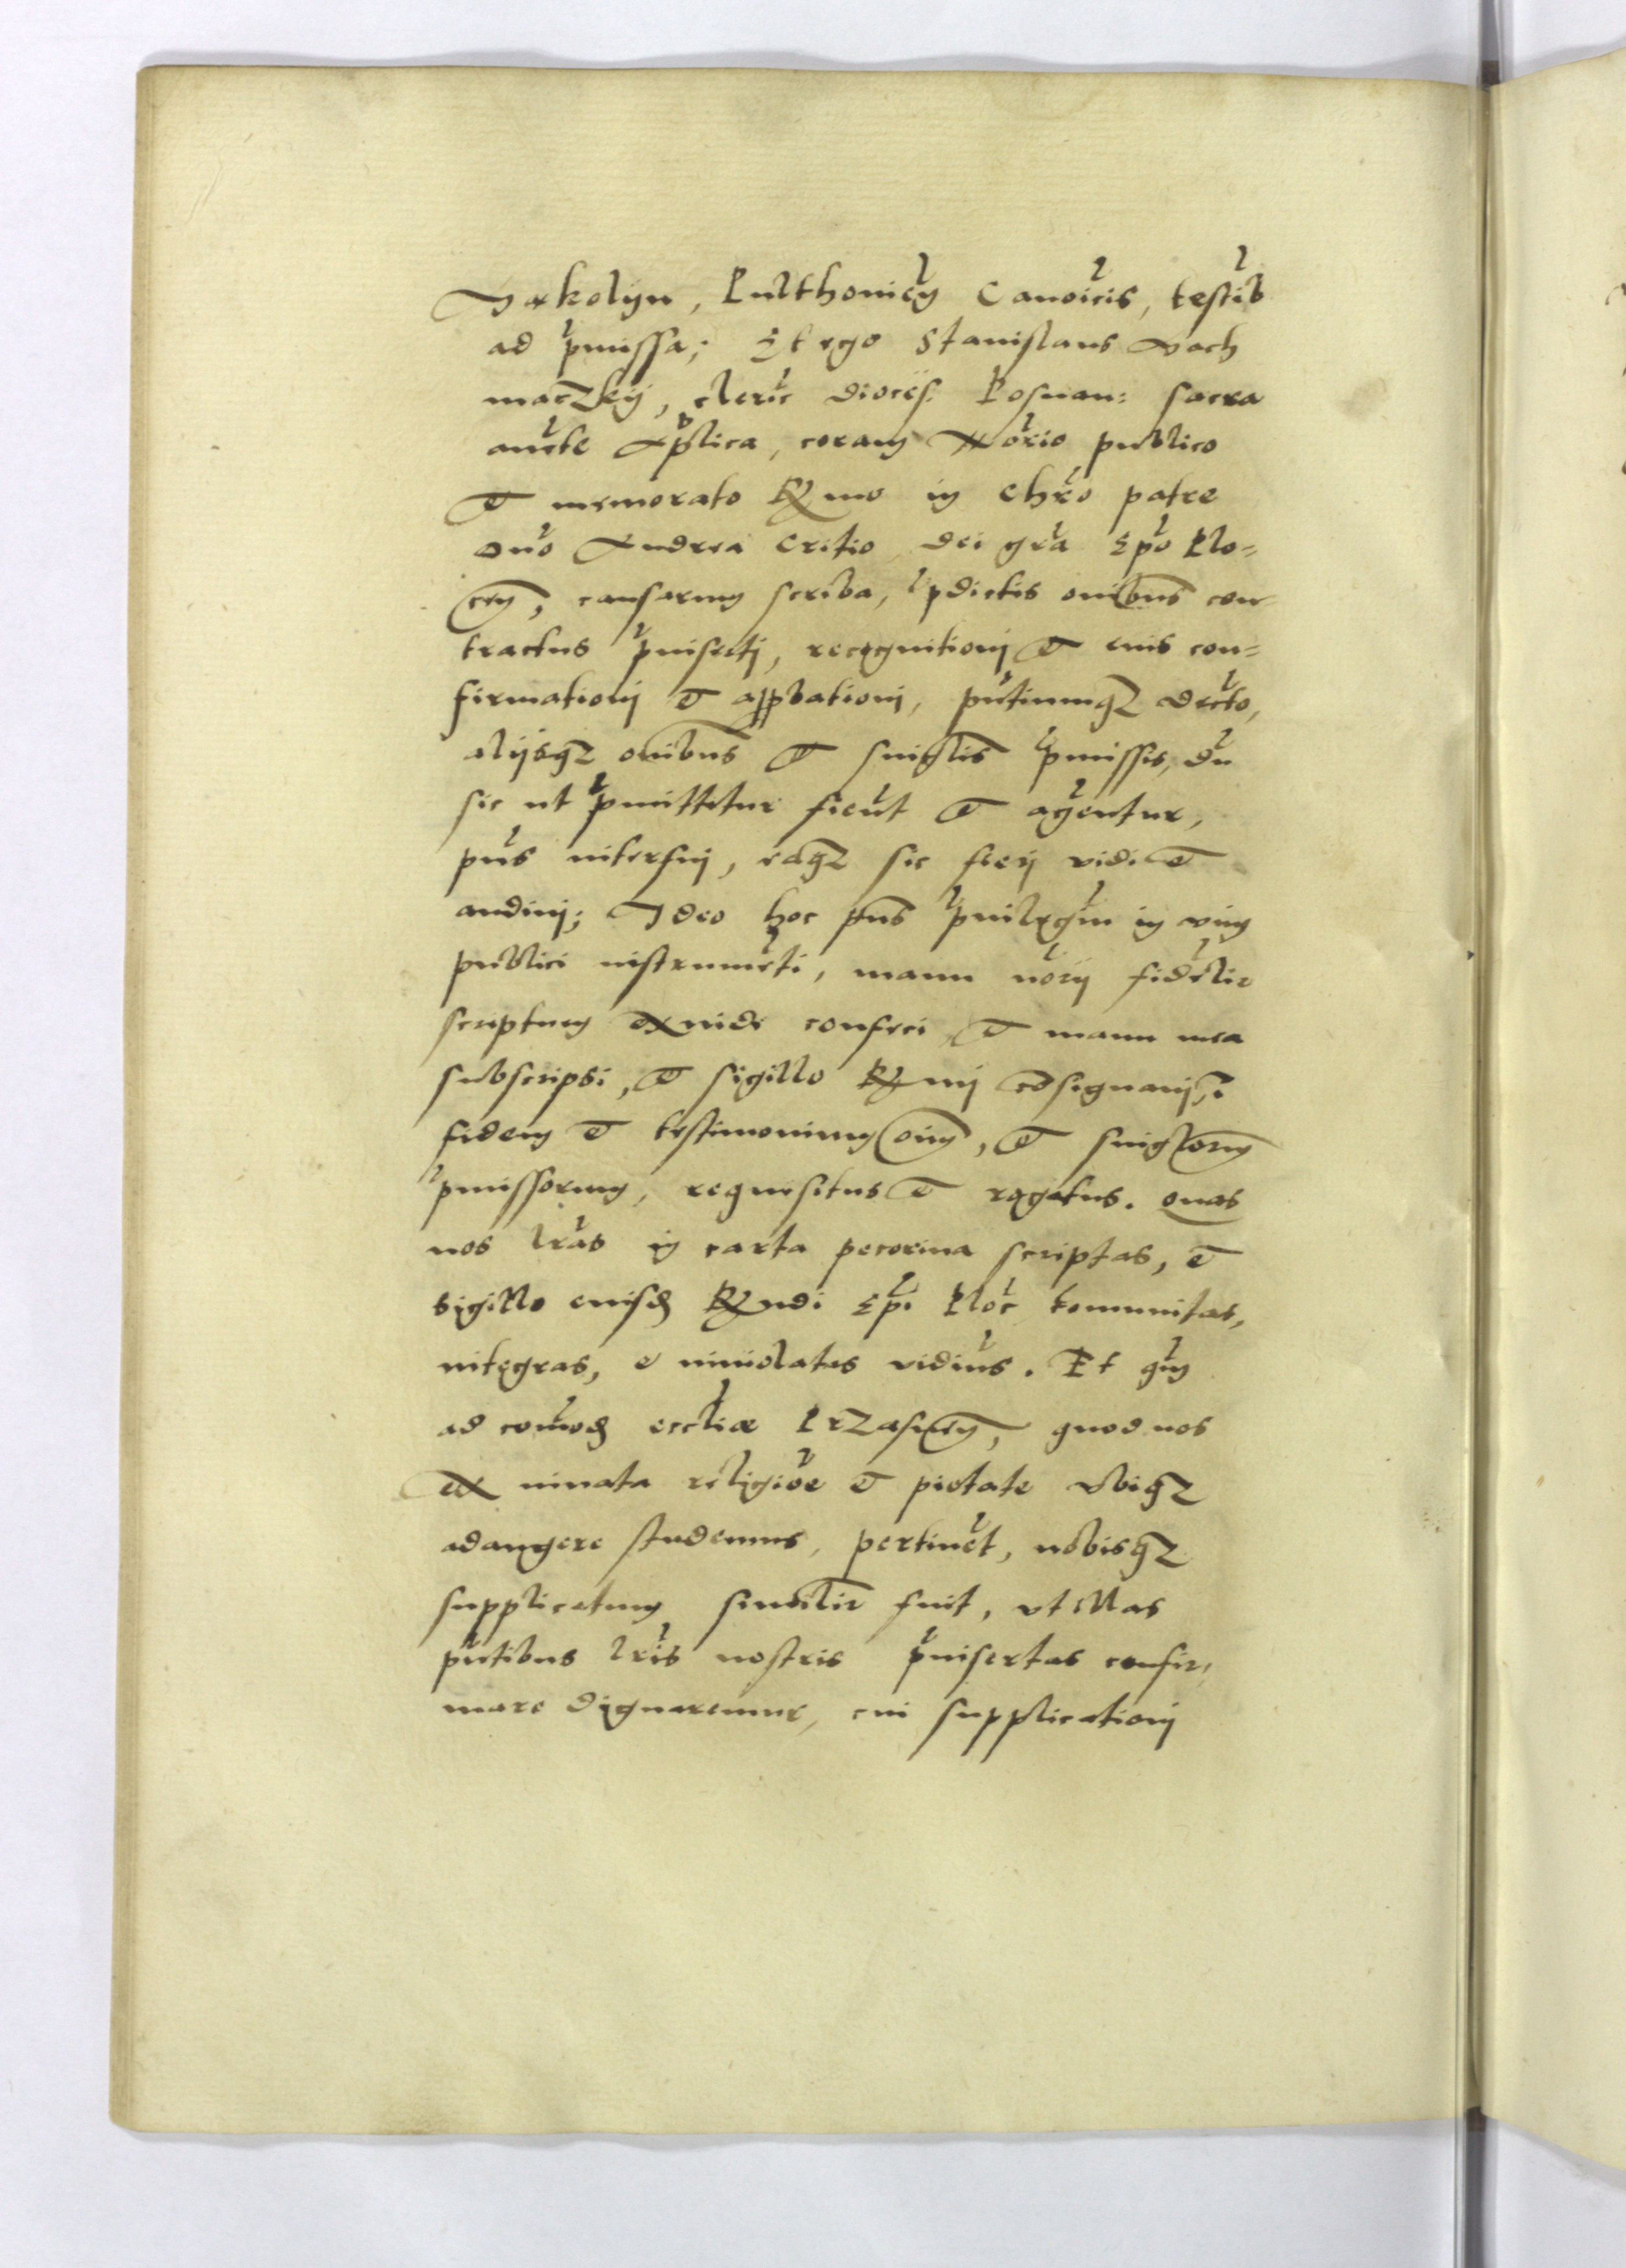 Makolijn, Pulthonien Canoicis, testib
ad pmissa; Et ego Stanislaus Woch
maczkij, cleric dioces: Posnan: sacra
aucte Aplica, coram Norio publico
et memorato Rmo in Chro patre
dno Andrea Critio dei gra Epo Plo=
cen, causarum scriba, pdictis onibus con=
tractus pinserti, recognitionj et eius con=
firmationj et appbationj, pntiumqz decto,
alijsqz onibus et singlis pmissis, du
sic ut pmittetur fieut et agentur,
pns interfuj, eaqz sic fierj vidi et
audiuj; Ideo hoc pns priuilegiu in vim
publici instrumeti, manu norij fidelir
scriptum exinde confeci, et manu mea
subscripsi, et sigillo Rmj cosignauj, i
fidem et testimonium oim, et singlorum
pmissorum, requisitus et rogatus. quas
nos lras in carta pecorina scriptas, et
sigillo eiusd Rndi Epi Ploc comunitas,
integras, et inuiolatas vidius. Et qum
ad comod eccliæ Przasnen, quod nos
ex innata religioe et pietate vbiqz
adaugere studemus, pertinet, nobisqz
supplicatum similir fuit, vt illas
pntibus lris nostris pinsertas confir,
mare dignaremur, cui supplicationj